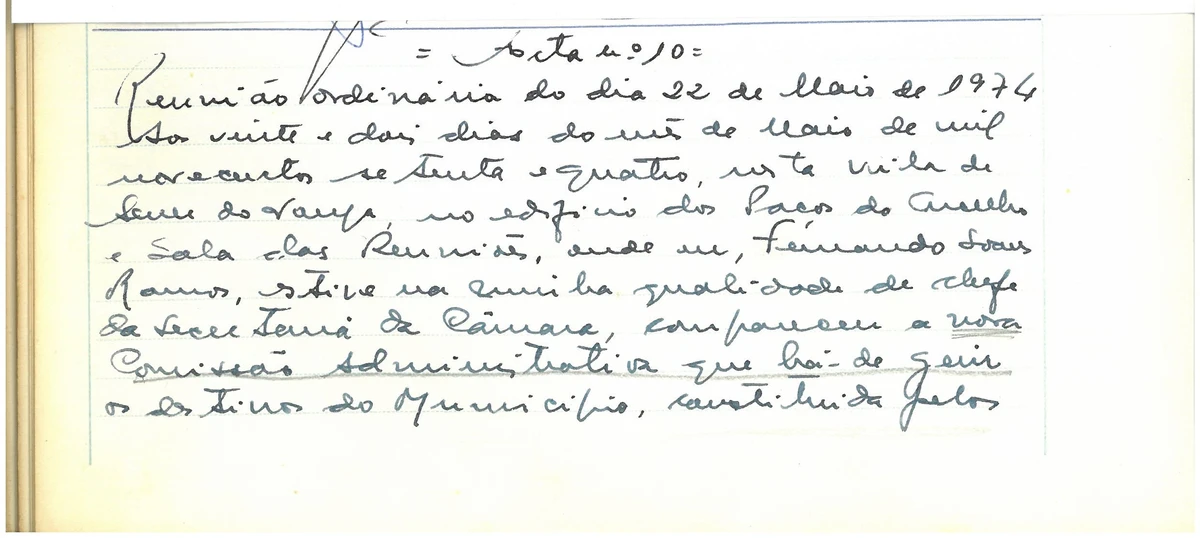 = Acta n.º 10 =
Reunião ordinária do dia 22 de Maio de 1974
Aos vinte e dois dias do mês de Maio de mil
novecentos setenta e quatro, nesta vila de
Sever do Vouga, no edifício dos Paços do Concelho
e Sala das Reuniões, onde eu, Fernando Soares
Ramos, estive na minha qualidade de chefe
da Secretaria da Câmara, compareceu a nova
Comissão Administrativa que há-de gerir
os destinos do Município, constituída pelos